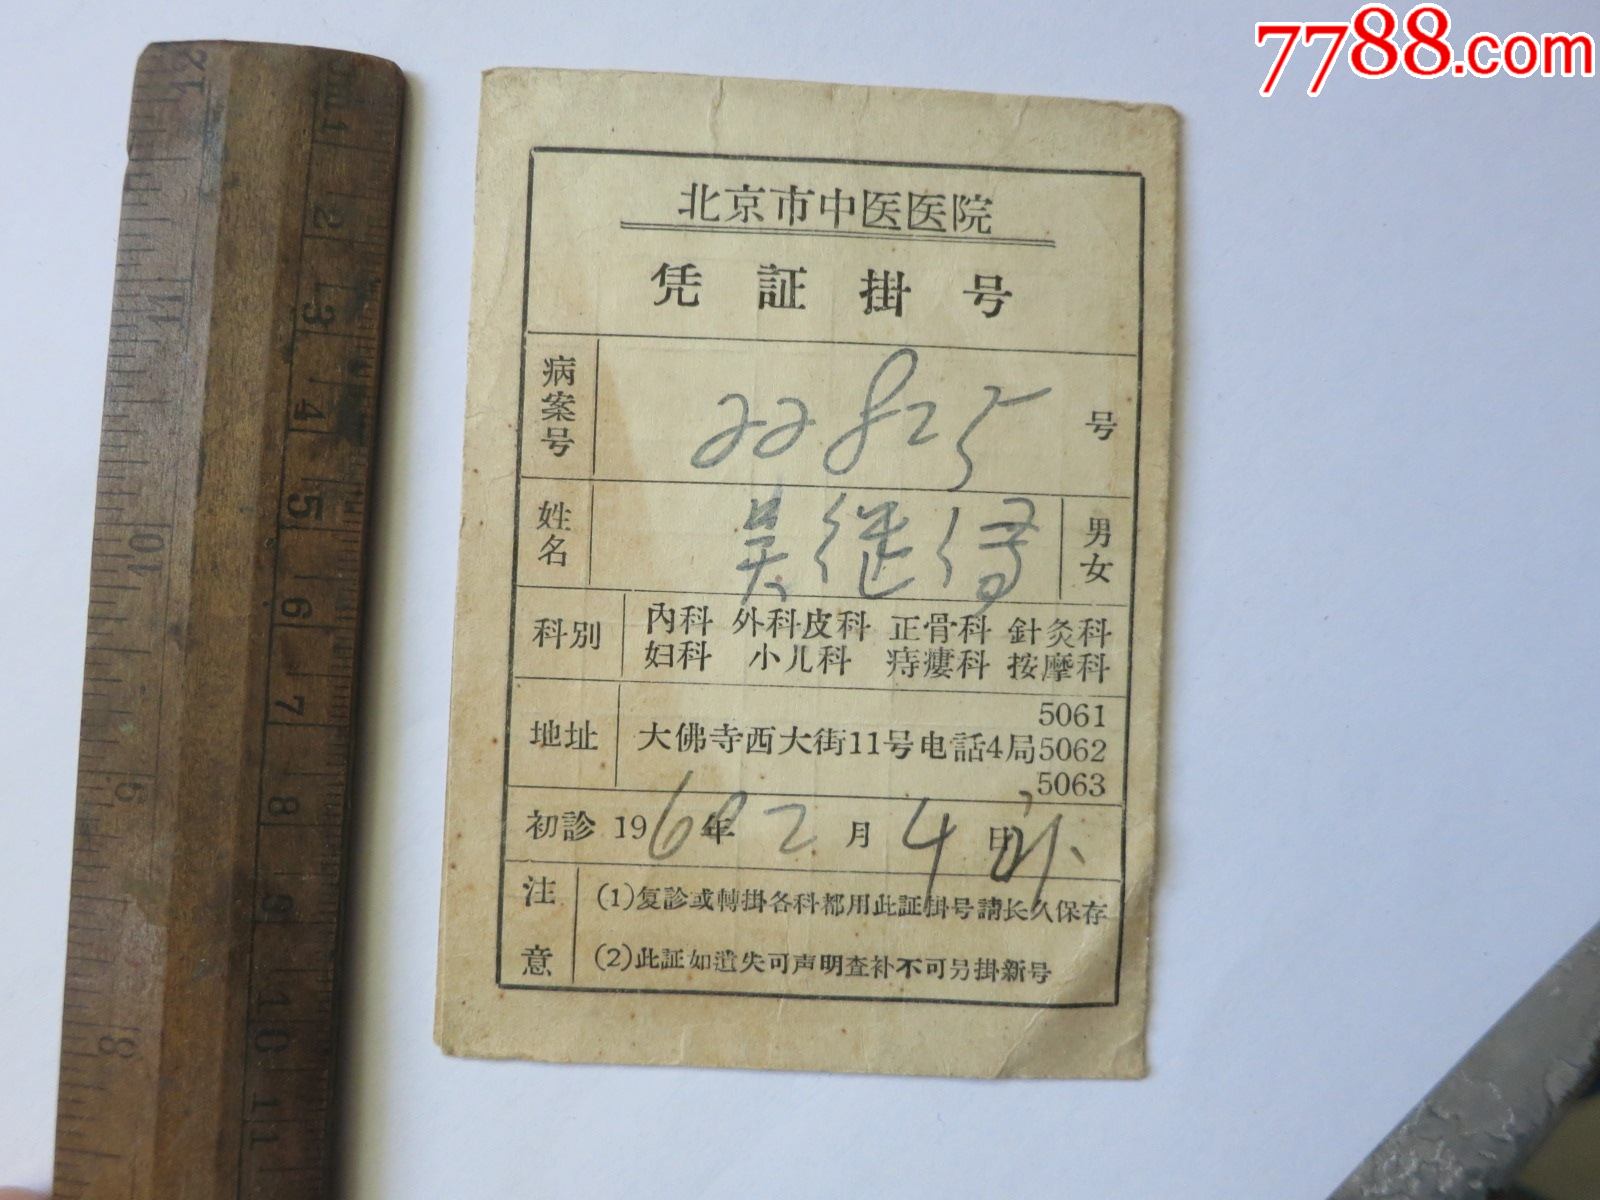 7788.com
北京市中医医院
凭証掛号
病案号 22825 号
姓名 吴继傅 男女
科别 內科 外科 皮科 正骨科 針灸科
妇科 小儿科 痔瘻科 按摩科
地址 大佛寺西大街11号电話4局 5061
5062
5063
初診 1960年 2月 4日 补
注意 (1)复診或轉掛各科都用此証掛号請长久保存
(2)此証如遺失可声明查补不可另掛新号
12
11
10
9
8
cm 1
2
3
4
5
6
7
8
9
10
11